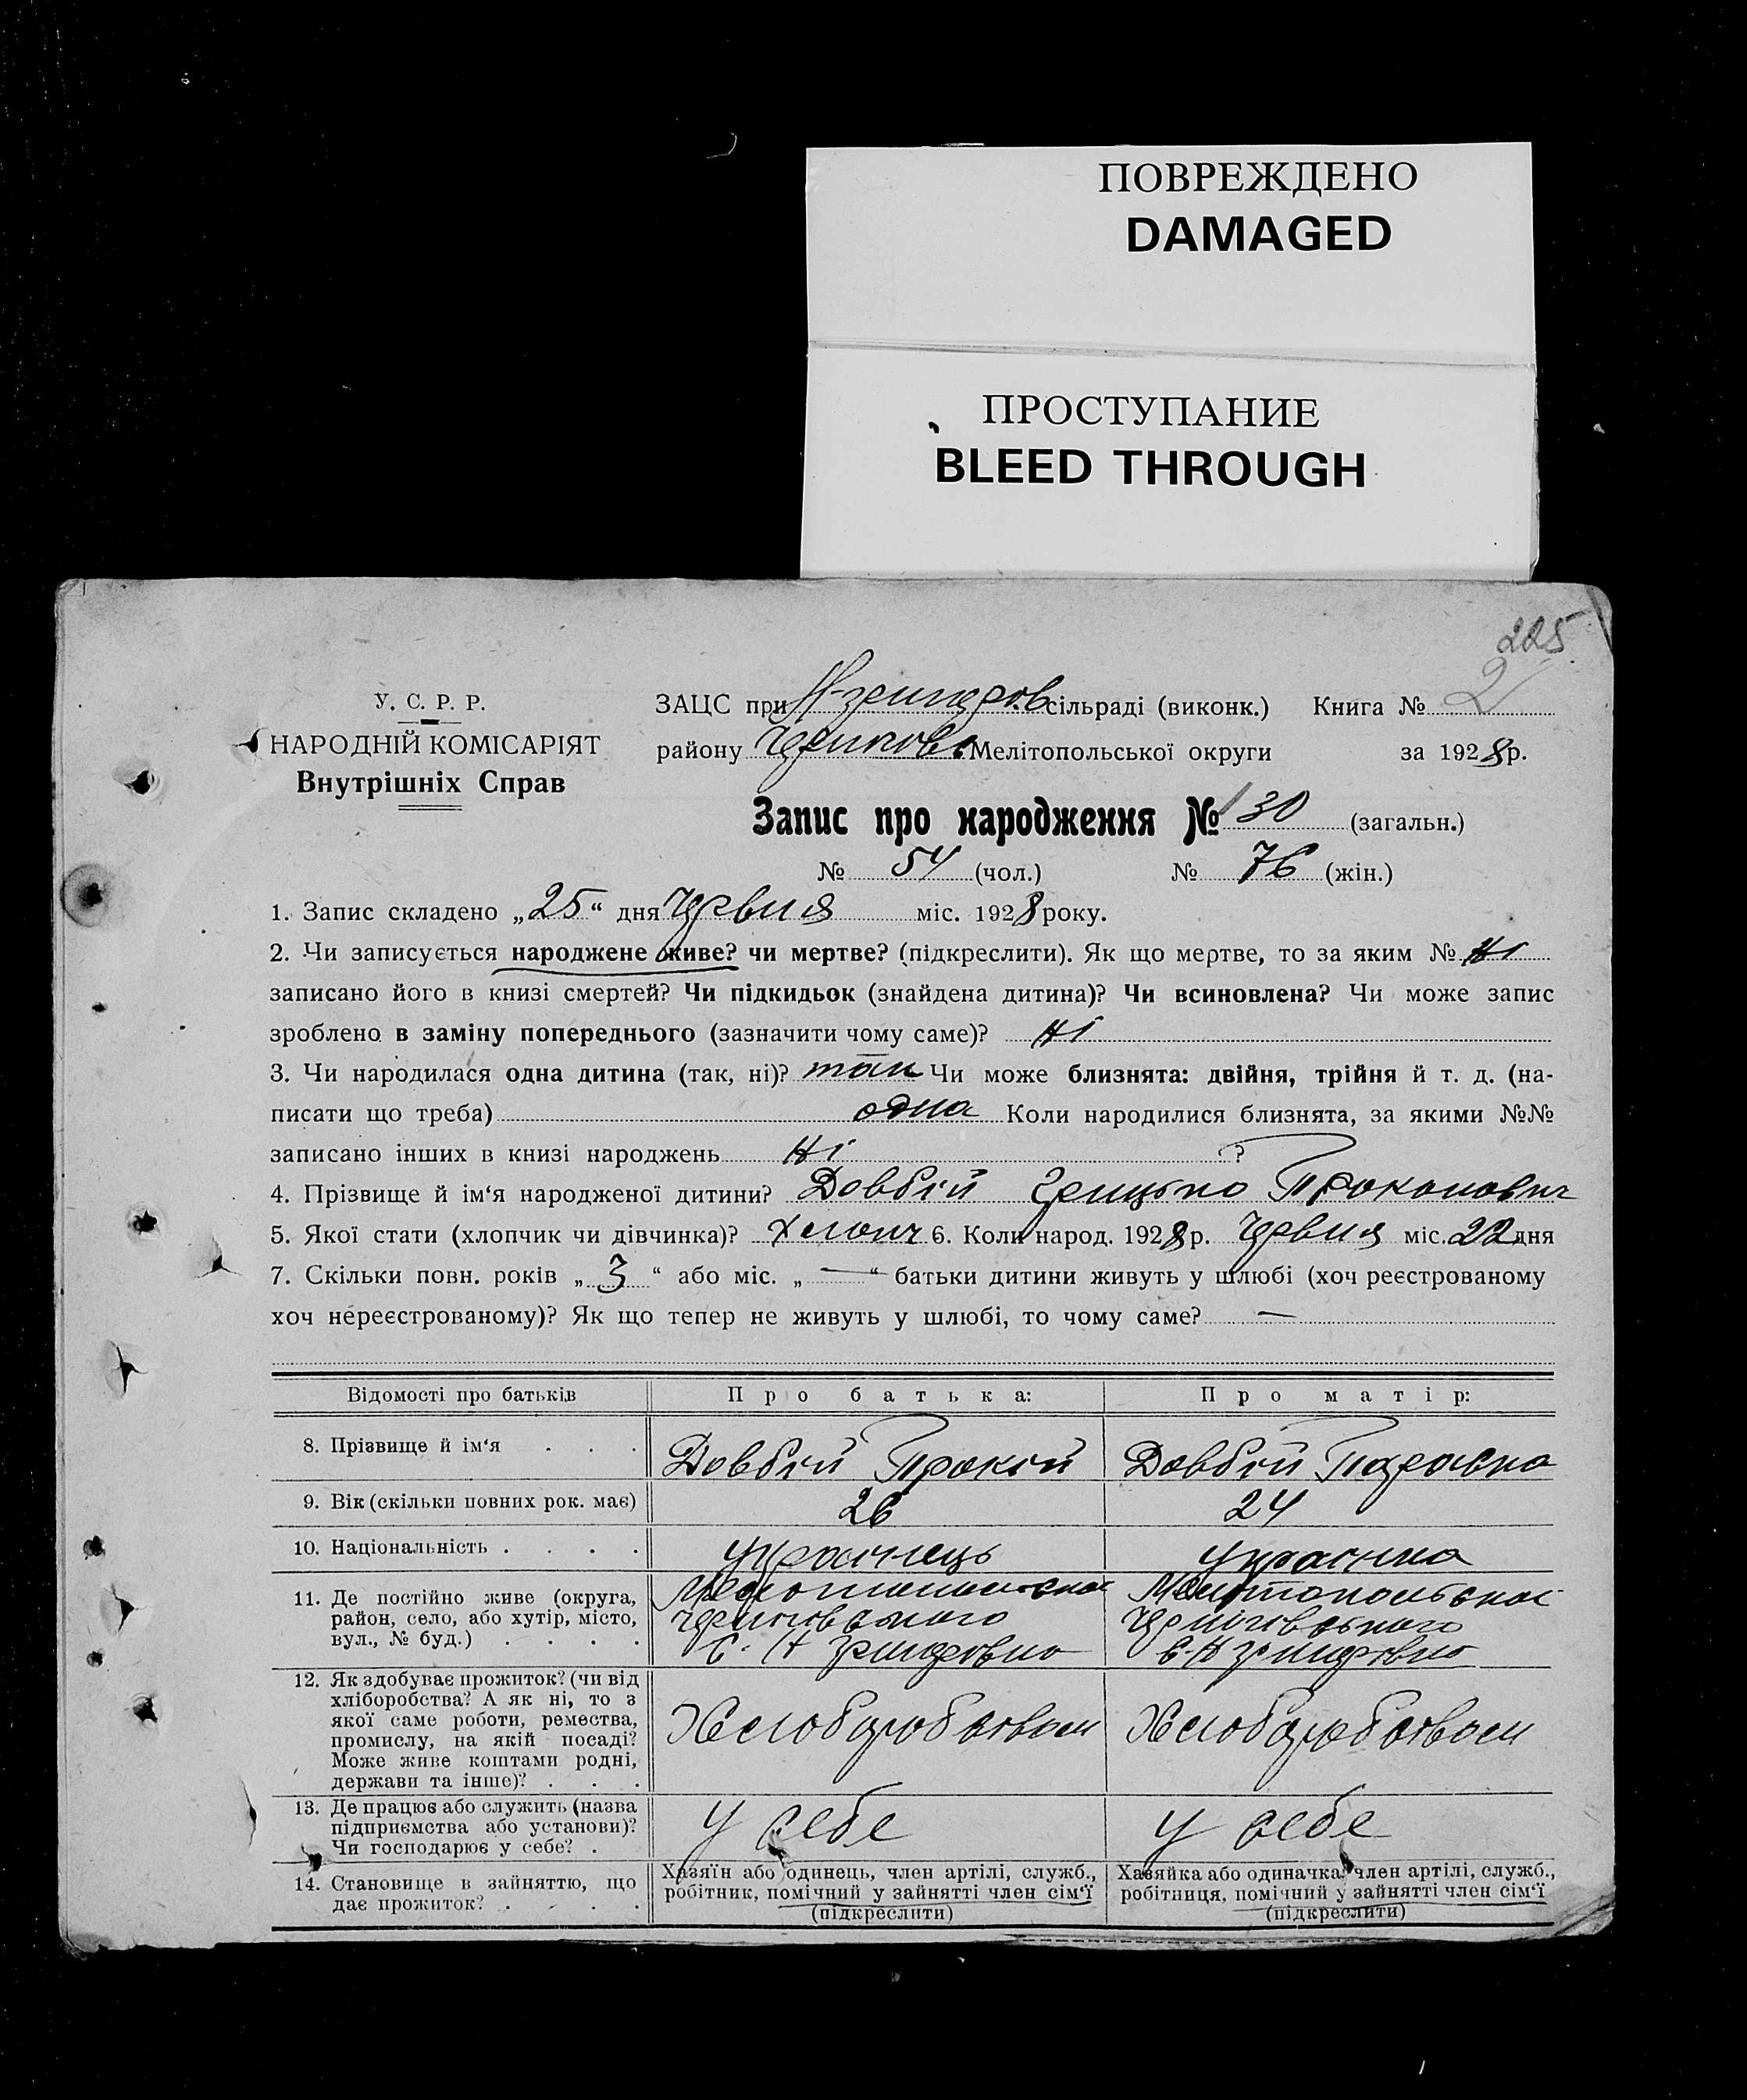 ПОВРЕЖДЕНО
DAMAGED
ПРОСТУПАНИЕ
BLEED THROUGH
225
У. С. Р. Р.
НАРОДНІЙ КОМІСАРІЯТ
Внутрішніх Справ
ЗАЦС при сільраді (виконк.) Книга № 2
району Мелітопольської округи за 1928 р.
Запис про народження № 130 (загальн.)
№ 54 (чол.) № 76 (жін.)
1. Запис складено „25“ дня Червня міс. 1928 року.
2. Чи записується народжене живе? чи мертве? (підкреслити). Як що мертве, то за яким № Ні
записано його в книзі смертей? Чи підкидьок (знайдена дитина)? Чи всиновлена? Чи може запис
зроблено в заміну попереднього (зазначити чому саме)? Ні
3. Чи народилася одна дитина (так, ні)? так Чи може близнята: двійня, трійня й т. д. (на-
писати що треба) одна Коли народилися близнята, за якими №№
записано інших в книзі народжень Ні ?
4. Прізвище й ім‘я народженої дитини? Довбій Грицько Прокопович
5. Якої стати (хлопчик чи дівчинка)? Хлопч 6. Коли народ. 1928 р. Червня міс. 22 дня
7. Скільки повн. років „3“ або міс. „—“ батьки дитини живуть у шлюбі (хоч реєстрованому
хоч нереєстрованому)? Як що тепер не живуть у шлюбі, то чому саме? —
Відомості про батьків Про батька: Про матір:
8. Прізвище й ім‘я . . . Довбій Прокій Довбій Параска
9. Вік (скільки повних рок. має) 26 24
10. Національність . . . . Українець Українка
11. Де постійно живе (округа,
район, село, або хутір, місто,
вул., № буд.) . . . .
Мелітопольської
Чернігівського
Мелітопольської
Чернігівського
12. Як здобуває прожиток? (чи від
хліборобства? А як ні, то з
якої саме роботи, ремества,
промислу, на якій посаді?
Може живе коштами родні,
держави та інше)? . . .
Хліборобством Хліборобством
13. Де працює або служить (назва
підприємства або установи)?
Чи господарює у себе? .
У себе У себе
14. Становище в зайняттю, що
дає прожиток? . . . .
Хазяїн або одинець, член артілі, служб.,
робітник, помічний у зайнятті член сім‘ї
(підкреслити)
Хазяйка або одиначка, член артілі, служб.,
робітниця, помічний у зайнятті член сім‘ї
(підкреслити)